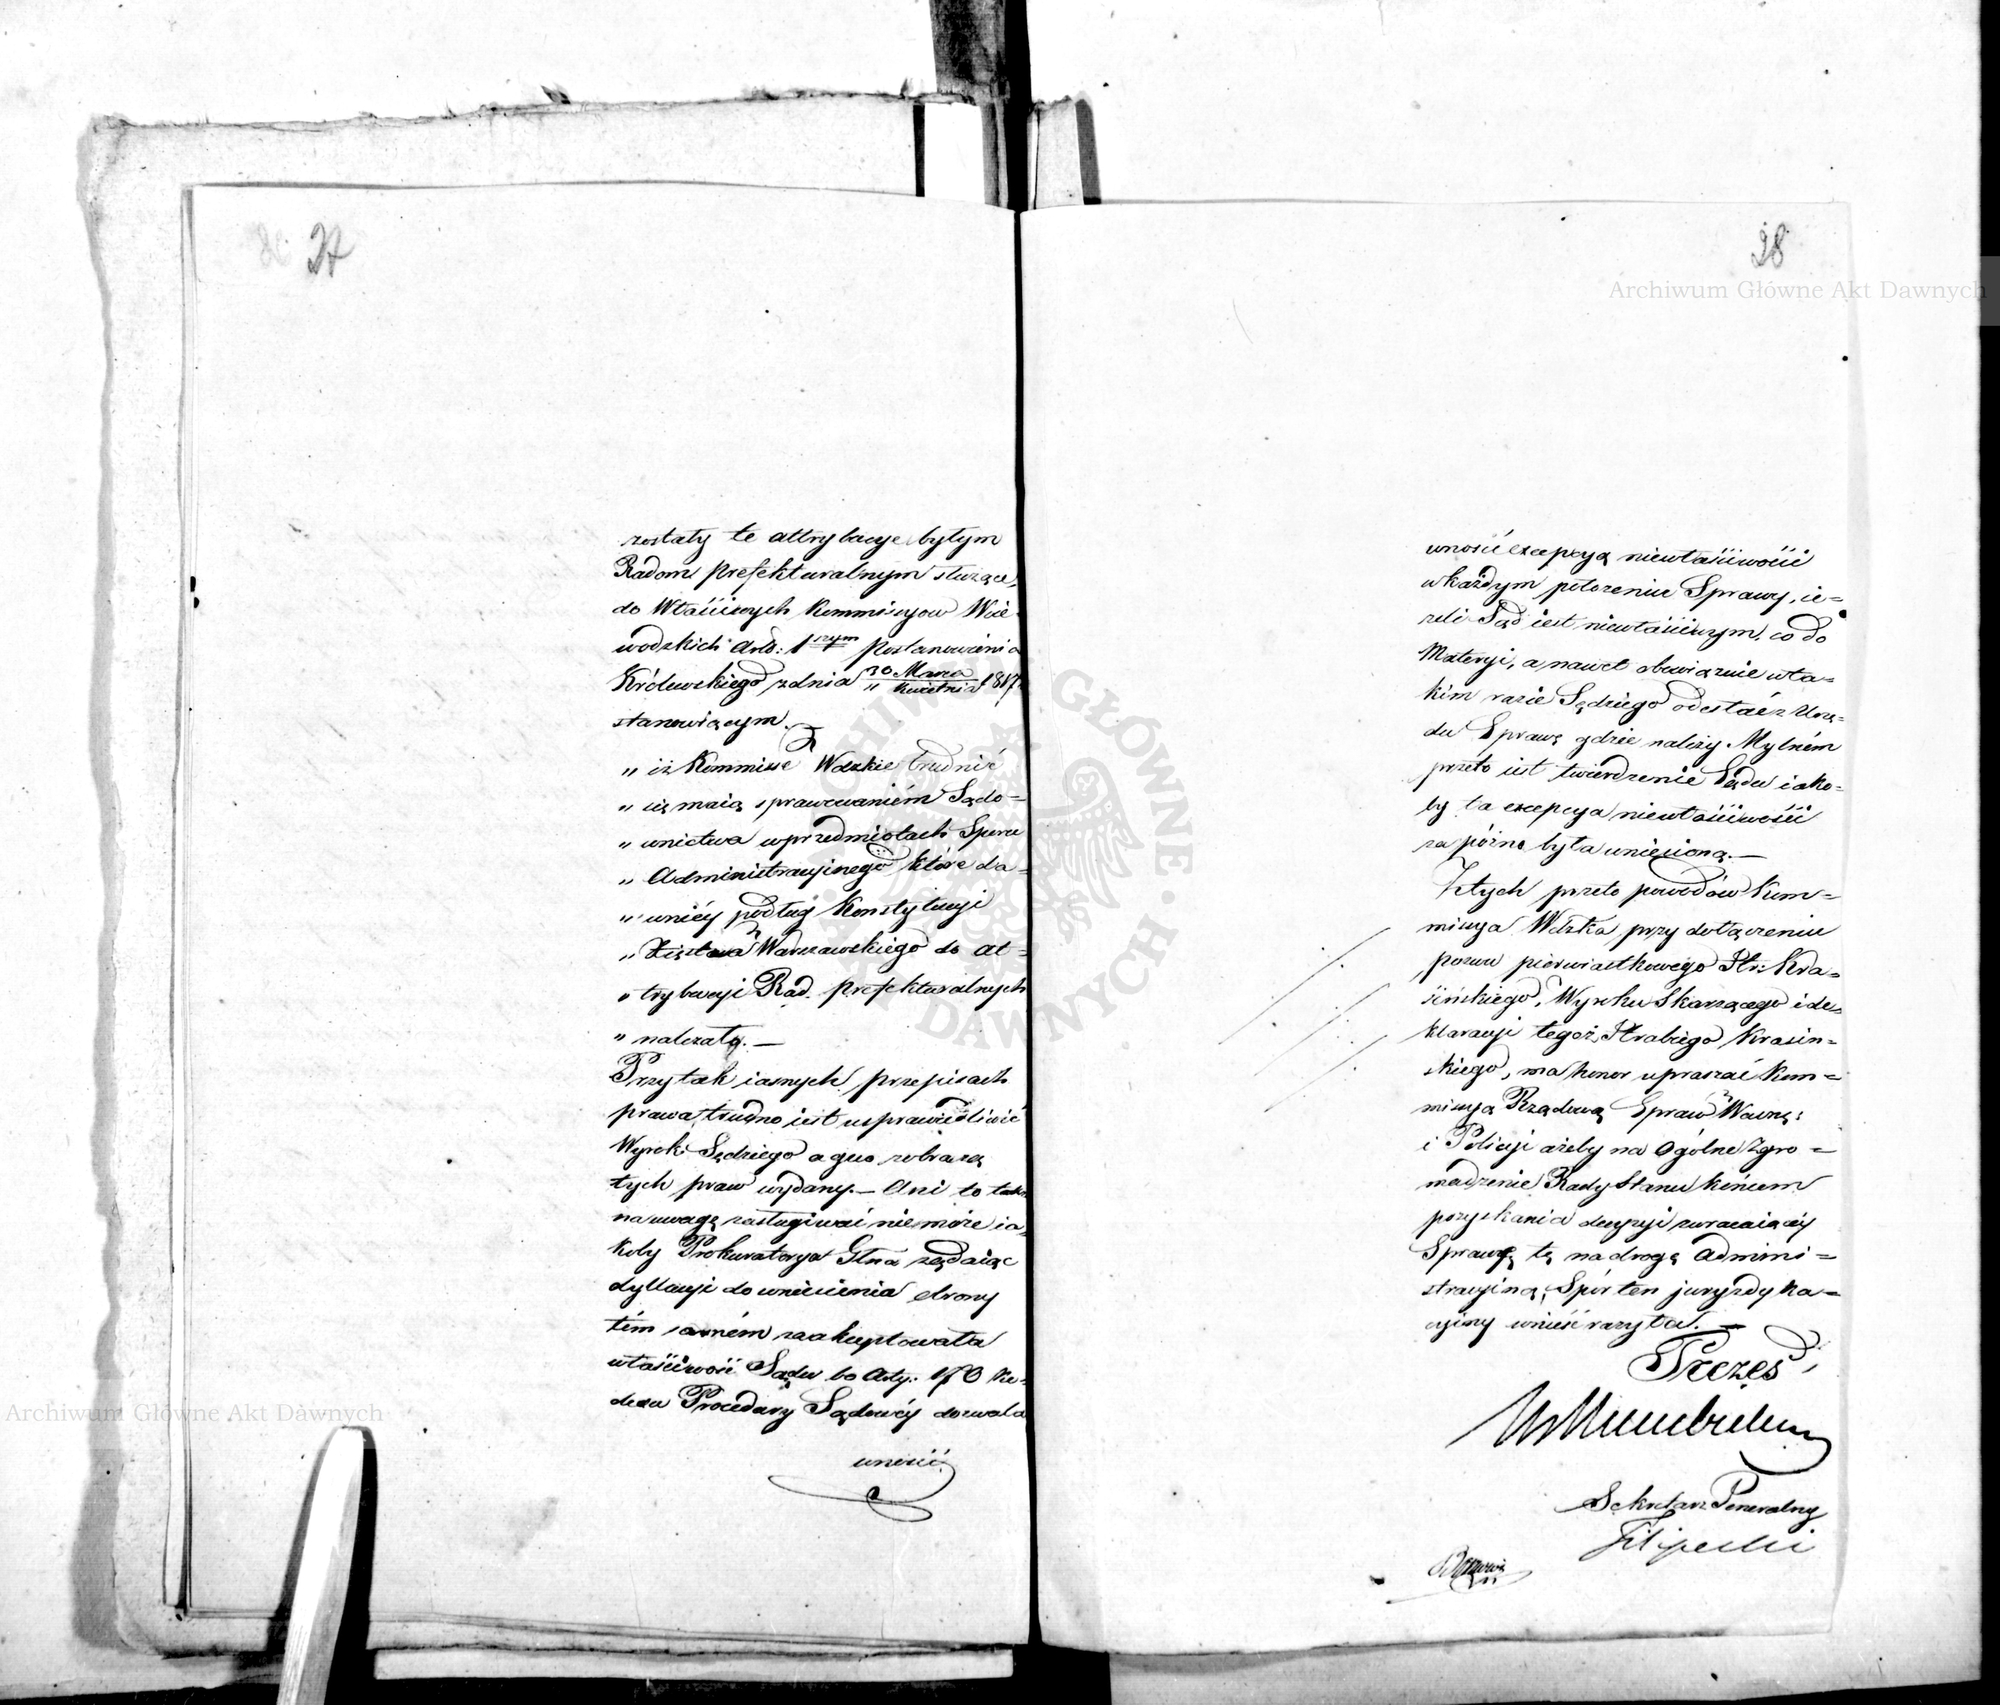 27
zostały te attrybucye byłym
Radom Prefekturalnym służące,
do Właściwych Kommissyow Woie-
wodzkich Art: 1szym Postanowienia
Królewskiego z dnia 30 Marca / " Kwietnia 1817
stanowiącym.
„ iż Kommisse Wdzkie trudnić
„ się maią sprawowaniem Sądo-
„ wnictwa w przedmiotach Sporu
„ Administracyinego które da-
„ wniéy podług Konstytucyi
„ Xięstwa Warszawskiego do at-
„ trybucyi Rad Prefekturalnych
„ należały. —
Przy tak iasnych przepisach
prawa, trudno iest usprawiedliwić
Wyrok Sędziego a quo z obrazą
tych praw wydany. — Ani to także
na uwagę zasługiwać nie może ia-
koby Prokuratorya Glna żądaiąc
dyllacyi do wniesienia obrony
tém samém zaakceptowała
właściwość Sądu bo Arty: 170 Ko-
dexu Procedury Sądowéy dozwala
wnosić
28
Archiwum Główne Akt Dawnych
wnosić excepcyą niewłaściwości
w każdym położeniu Sprawy, ie-
żeli Sąd iest niewłaściwym, co do
Materyi, a nawet obowiązuie w ta-
kim razie Sędziego odesłać z Urzę-
du Sprawę gdzie należy. Mylném
przeto iest twierdzenie Sądu iako-
by ta excepcya niewłaściwości
za późno była wniesioną. —
Z tych przeto powodów Kom-
missya Wdzka, przy dołączeniu
pozwu pierwiastkowego Hr: Kra-
sińskiego, Wyroku Skarżącego i de-
klaracyi tegoż Hrabiego Krasin-
skiego, ma honor upraszać Kom-
missyą Rządową Spraw Wewnę:
i Policyi ażeby na Ogólne Zgro-
madzenie Rady Stanu końcem
pozyskania decyzyi zwracaiącéy
Sprawę tę na drogę Admini-
stracyiną, Spór ten juryzdyka-
cyiny wnieść raczyła. —
Prezes
Sekretarz Generalny
Filipecki
Archiwum Główne Akt Dawnych
ARCHIWUM GŁÓWNE AKT DAWNYCH